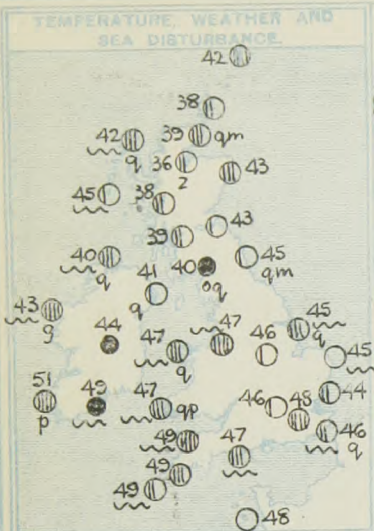 TEMPERATURE, WEATHER AND
SEA DISTURBANCE.
42
38
42 39 qm
q 36 43
2
45 38
43
39
40 40 45
q 41 oq qm
q
43
g 44 47 47 46 45
q q
45
51 49 47 46 44
p qp 48
49 46
q
47
49
49
48